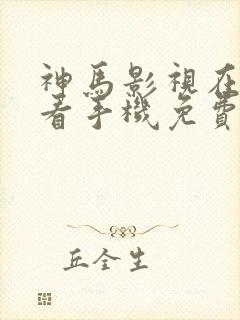 神馬影視在
看手機免費
丘全生